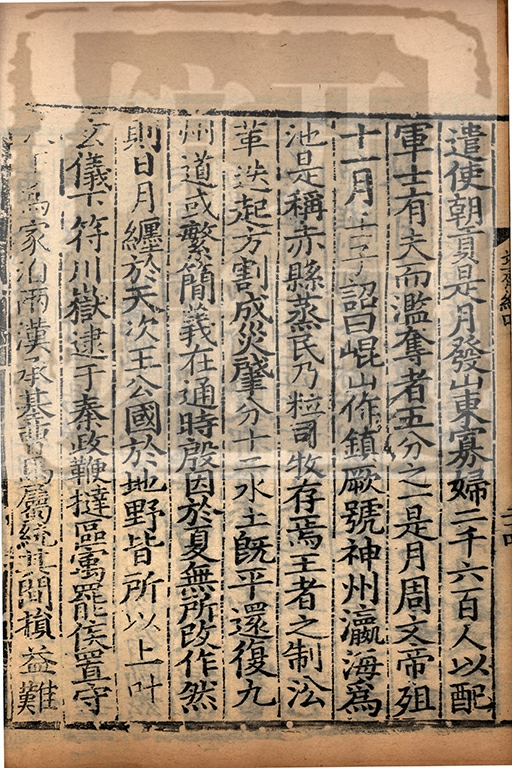 遣使朝貢是月發山東寡婦二千六百人以配
軍士有夫而濫奪者五分之一是月周文帝殂
十一月壬子詔曰崐山作鎮厥號神州瀛海爲
池是稱赤縣蒸民乃粒司牧存焉王者之制沿
革迭起方割成災肇分十二水土旣平還復九
州道或繁簡義在通時殷因於夏無所改作然
則日月纏於天次王公國於地野皆所以上叶
玄儀下符川嶽逮于秦政鞭撻區寓罷侯置守
天下爲家洎兩漢承基曹馬屬統其間損益難